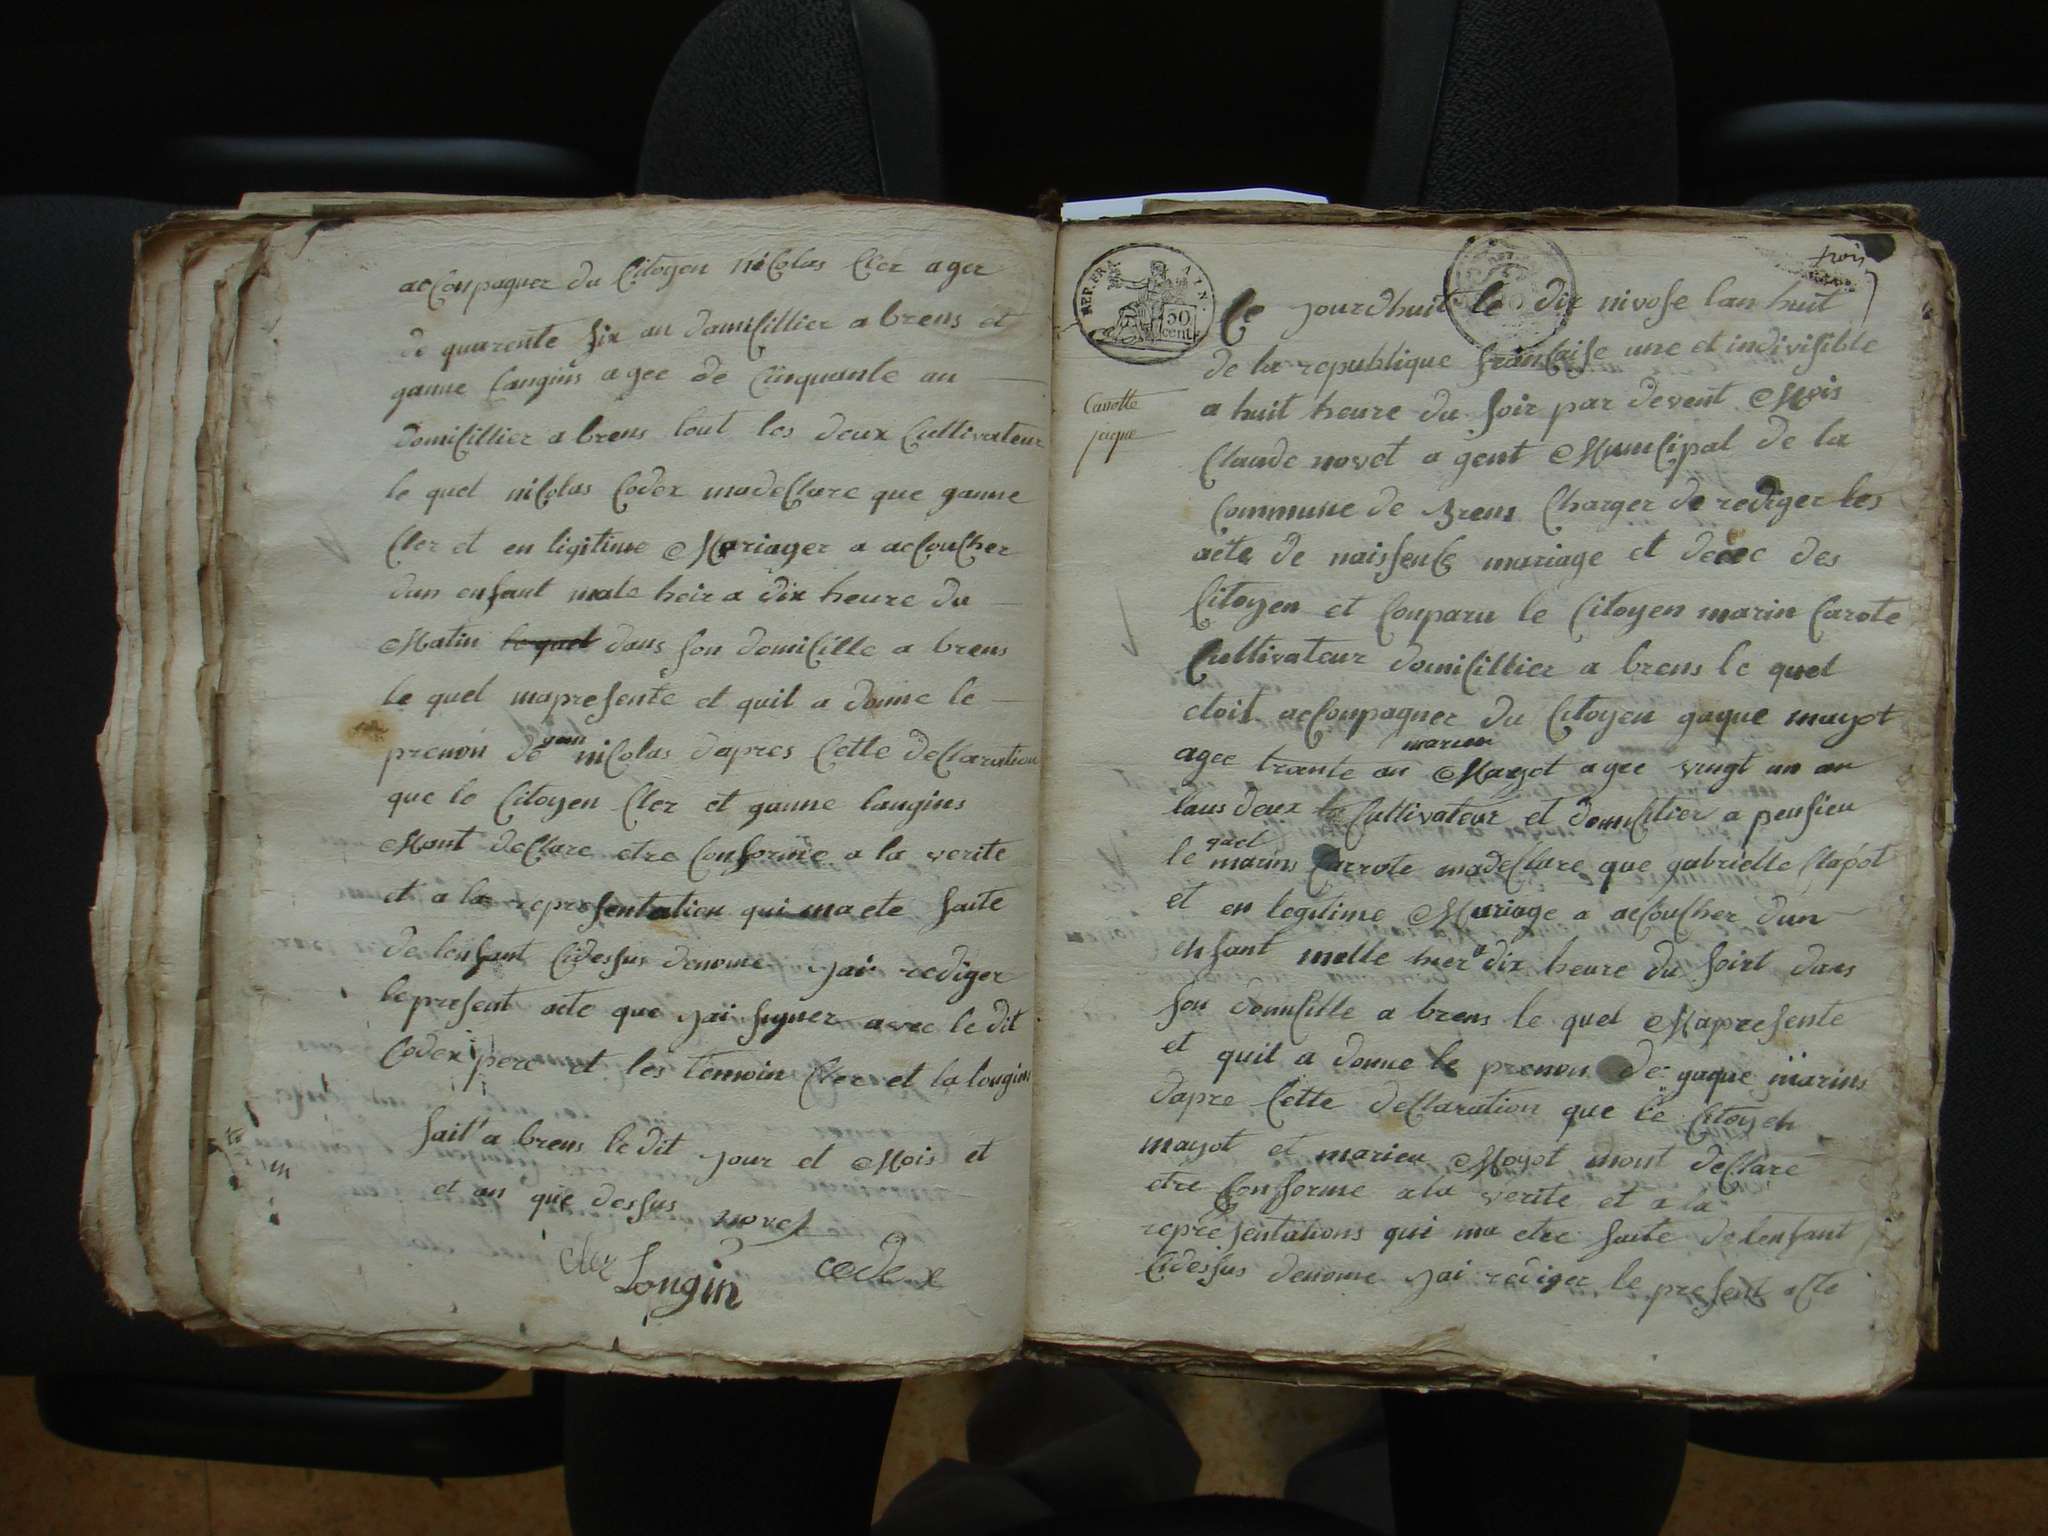 acConpagner du Citoyen niColas Cler ager
de quarente six an domiCillier a brens et
ganne Langins agee de Cinquante an
domiCillier a brens tout les deux Cultivateur
le quel niColas Codex madeClare que ganne
Cler et en ligitime Mariager a acCouCher
dun enfant male heir a dix heure du
Matin le quel dans son domiCille a brens
le quel mapresente et quil a donne le
prenon de gean niColas dapres Cette deClaration
que le Citoyen Cler et ganne langins
Mont deClare etre Conforme a la verite
et a la representation qui ma ete faite
de lenfant Cidessus denome jai rediger
le present acte que jai signer avec le dit
Codex pere et les temoin Cler et la longins
fait a brens le dit jour et Mois et
et an que dessus novet
cler Longin codex
trois
REP. FRA.
50
cent.
Ce jourdhuit le dix nivose lan huit
de la republique franCaise une et indivisible
Carrotte
jaque
a huit heure du soir par devent Mois
Claude novet agent MuniCipal de la
Commune de Brens Charger de rediger les
acte de naissenCe mariage et decec des
Citoyen et Conparu le Citoyen marin Carote
Cultivateur domiCillier a brens le quel
etoit acConpagner du Citoyen gaque mayot
agee trante an marieu Mayot agee vingt un an
tous deux Cultivateur et domiCilier a pensieu
le quel marins Carrote madeClare que gabrielle Clapot
et en legitime Mariage a acCouCher dun
enfant malle hier a dix heure du soirt dans
son domiCille a brens le quel Mapresente
et quil a donne le prenon de gaque marins
dapre Cette deClaration que le Citoyen
mayot et marieu Moyot mont deClare
etre Conforme a la verite et a la
representations qui ma etre faite de lenfant
Cidessus denome jai rediger le present acte